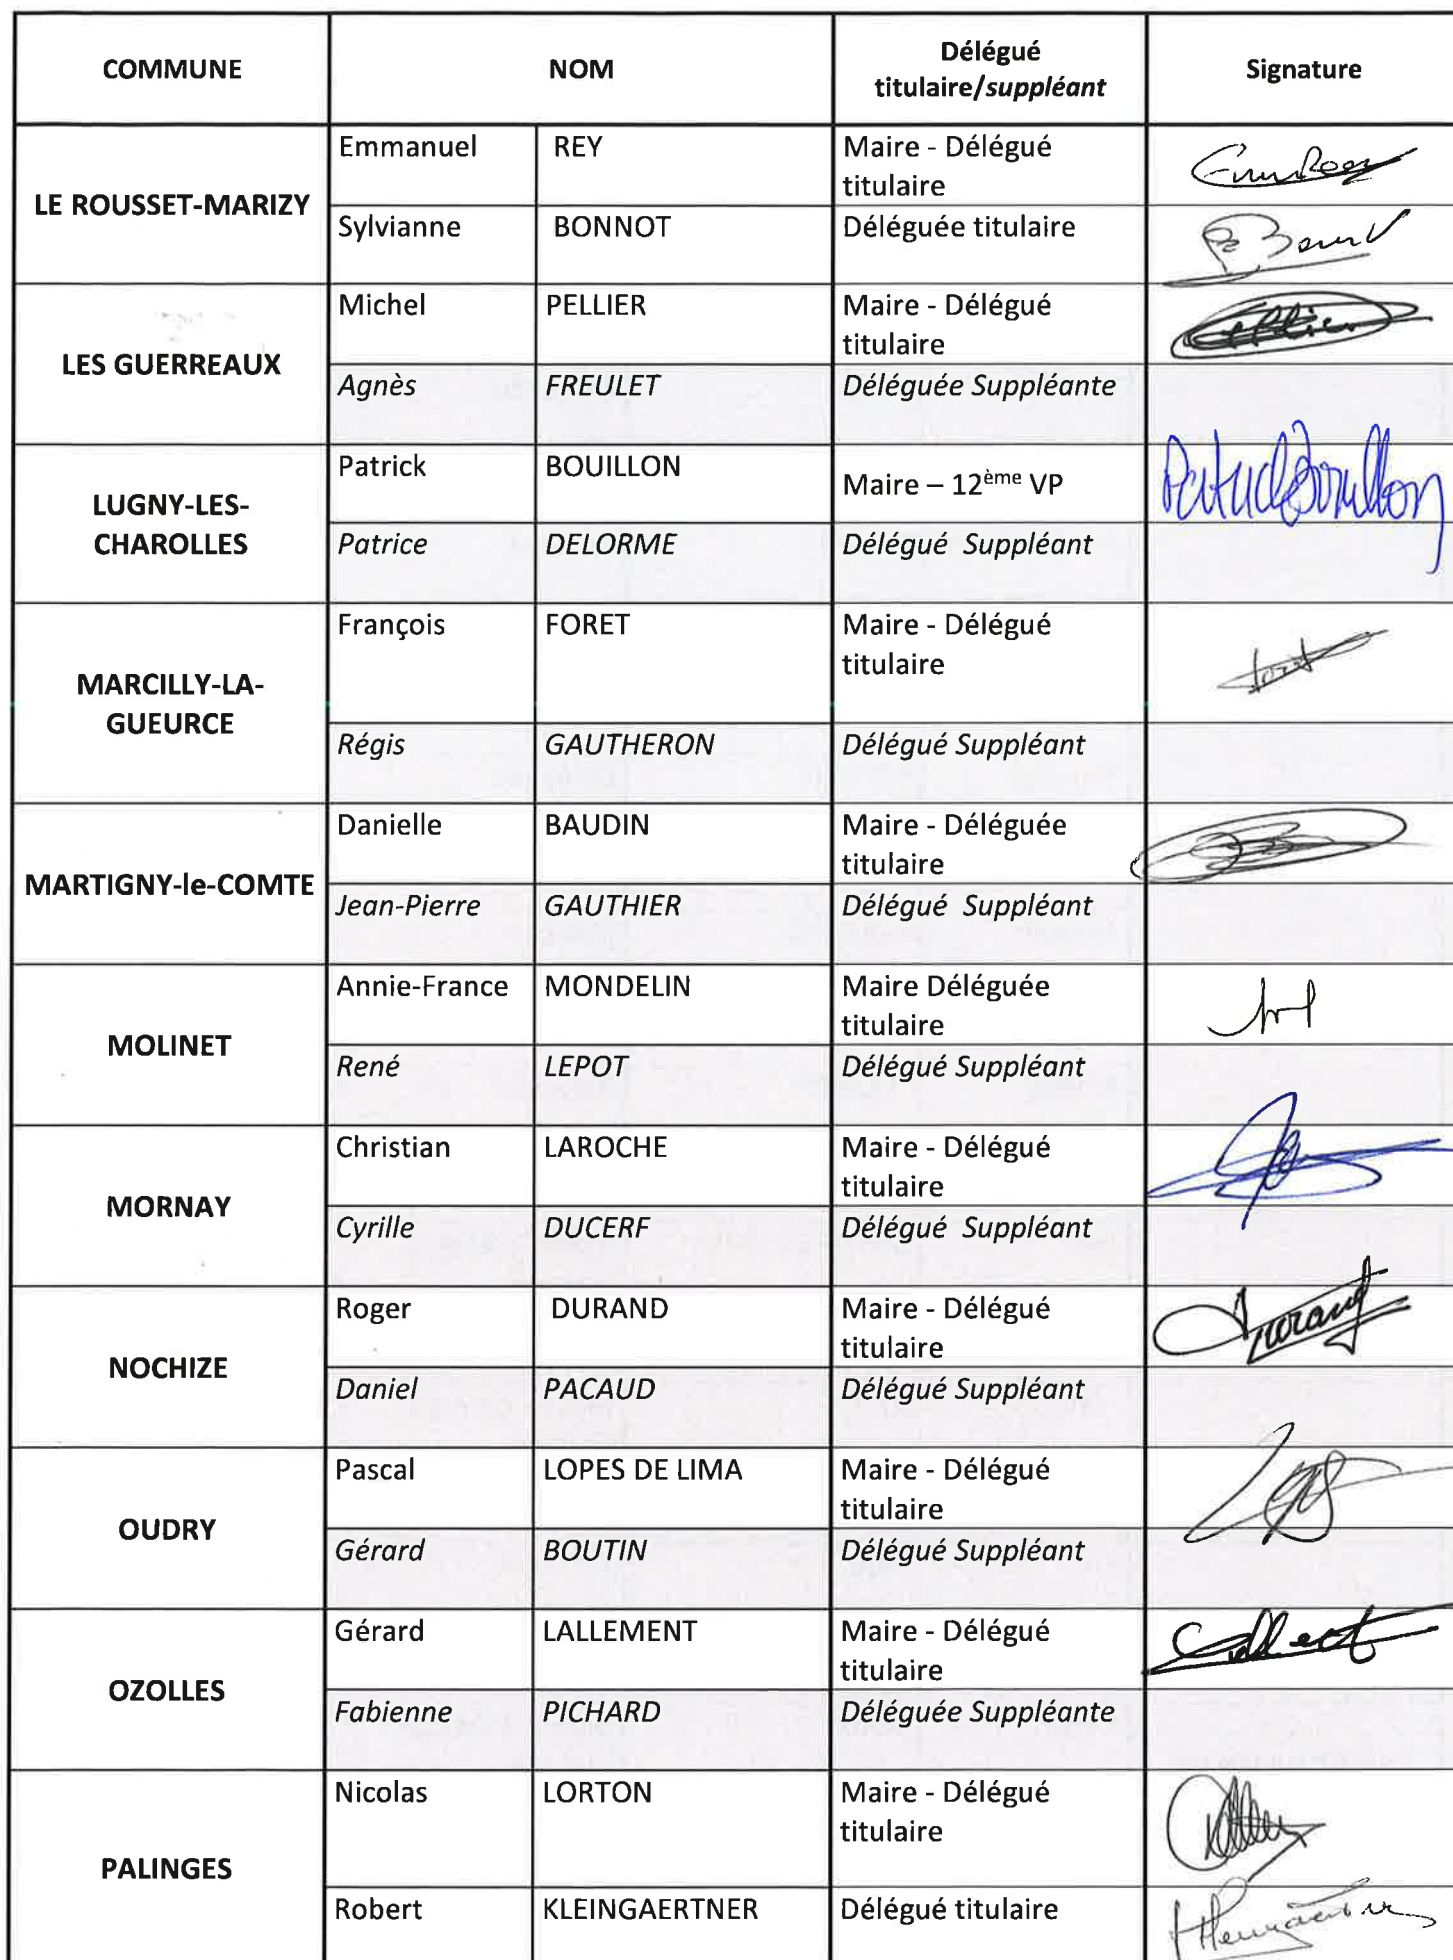 COMMUNE NOM Délégué titulaire/suppléant Signature
LE ROUSSET-MARIZY
Emmanuel REY Maire - Délégué titulaire
Sylvianne BONNOT Déléguée titulaire
LES GUERREAUX
Michel PELLIER Maire - Délégué titulaire
Agnès FREULET Déléguée Suppléante
LUGNY-LES-CHAROLLES
Patrick BOUILLON Maire – 12ème VP
Patrice DELORME Délégué Suppléant
MARCILLY-LA-GUEURCE
François FORET Maire - Délégué titulaire
Régis GAUTHERON Délégué Suppléant
MARTIGNY-le-COMTE
Danielle BAUDIN Maire - Déléguée titulaire
Jean-Pierre GAUTHIER Délégué Suppléant
MOLINET
Annie-France MONDELIN Maire Déléguée titulaire
René LEPOT Délégué Suppléant
MORNAY
Christian LAROCHE Maire - Délégué titulaire
Cyrille DUCERF Délégué Suppléant
NOCHIZE
Roger DURAND Maire - Délégué titulaire
Daniel PACAUD Délégué Suppléant
OUDRY
Pascal LOPES DE LIMA Maire - Délégué titulaire
Gérard BOUTIN Délégué Suppléant
OZOLLES
Gérard LALLEMENT Maire - Délégué titulaire
Fabienne PICHARD Déléguée Suppléante
PALINGES
Nicolas LORTON Maire - Délégué titulaire
Robert KLEINGAERTNER Délégué titulaire